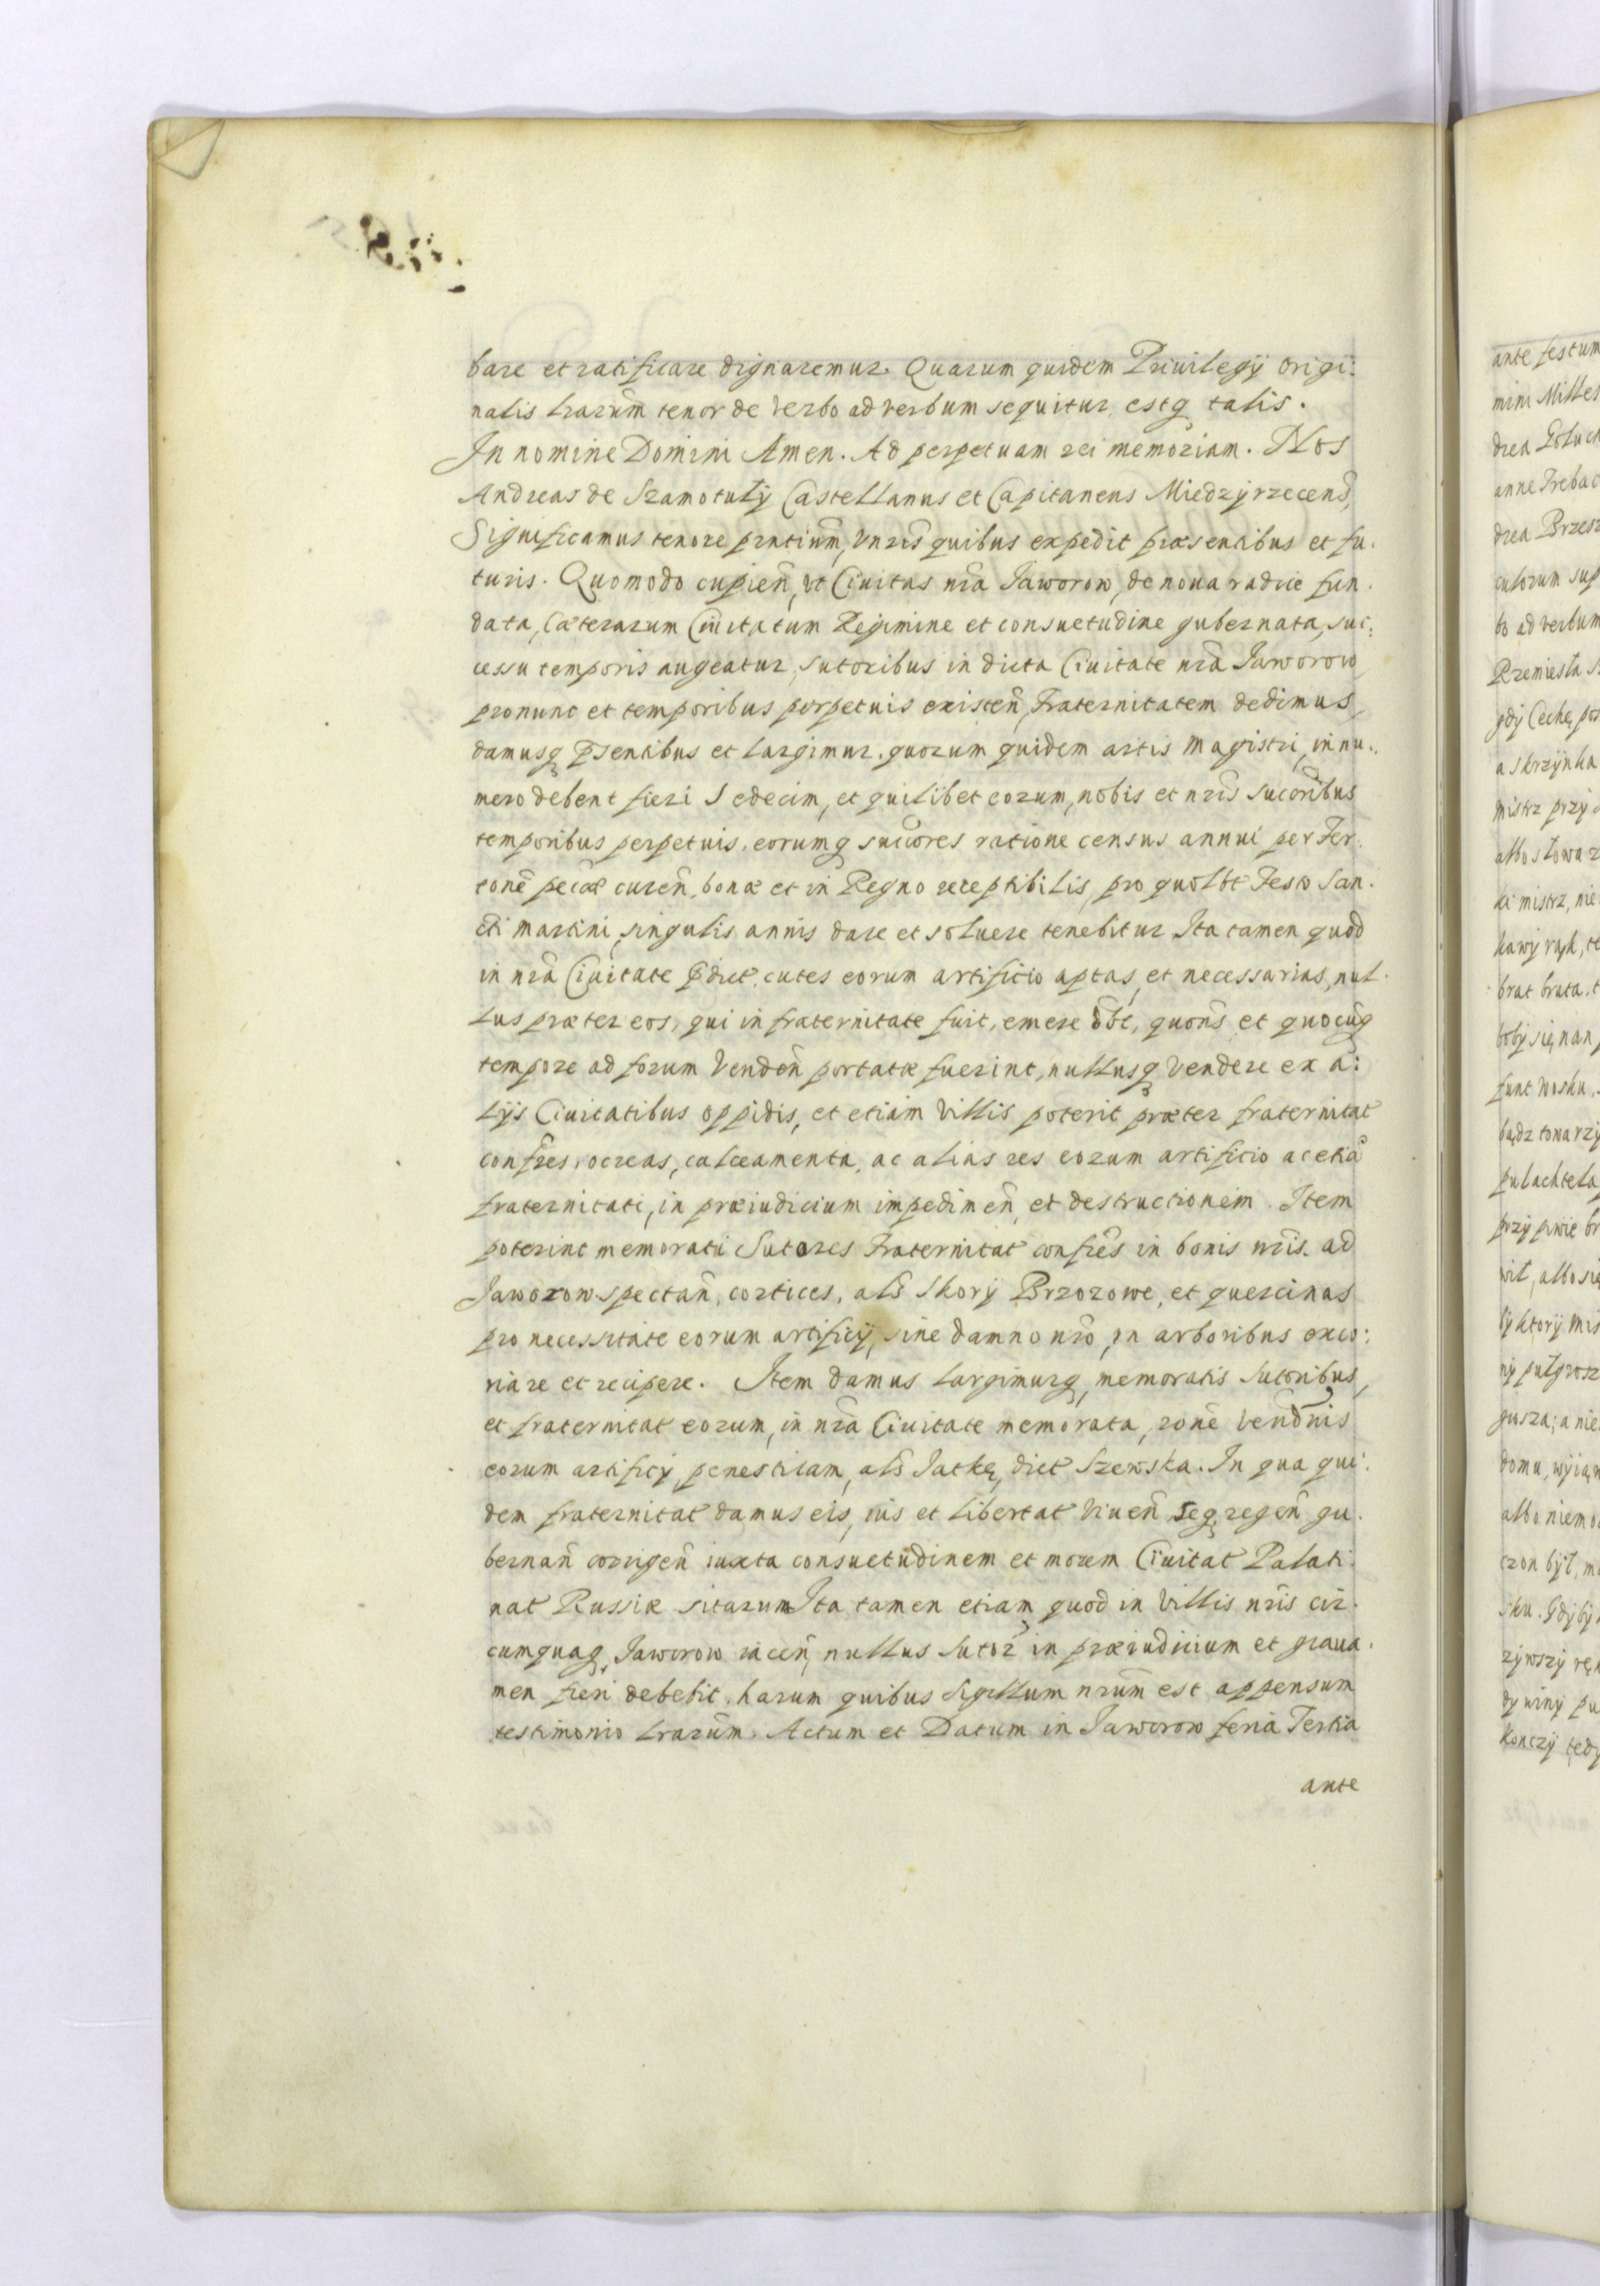 bare et ratificare dignaremur. Quarum quidem Priuilegÿ origi:
nalis Lrarũm tenor de verbo ad verbum sequitur, estq talis.
In nomine Domini Amen. Ad perpetuam rei memoriam. Nos
Andreas de Szamotulÿ Castellanus et Capitaneus Miedzÿrzecens̃,
Significamus tenore pñtium, vnrs̃ quibus expedit præsentibus et fu.
turis. Quomodo cupien̄, vt Ciuitas nr̃a Jaworow, de noua radice fun.
data, Cæterarum Ciuitatum Regimine et consuetudine gubernata, suc:
cessu temporis augeatur, sutoribus in dicta Ciuitate nr̃a Jaworow
pronunc et temporibus perpetuis existen̄, Fraternitatem dedimus,
damusq p̄sentibus et Largimur. quorum quidem artis Magistri, in nu:
mero debent fieri Sedecim, et quilibet eorum, nobis et nr̃is Sucor̃ibus
temporibus perpetuis, eorumq succores ratione census annui per Fer.
tonē pecc̃æ curen̄, bonæ et in Regno receptibilis, pro quolbt̃ Festo San.
cti Martini, singulis annis dare et soluere tenebitur Ita tamen quod
in nr̃a Ciuitate p̄dict, cutes eorum artificio aptas, et necessarias, nul.
Lus præter eos, qui in fraternitate fuit, emere dbt̃, quons̃ et quocũq
tempore ad forum venden̄ portatæ fuerint, nullusq vendere ex a:
Lÿs Ciuitatibus oppidis, et etiam villis poterit præter fraternitat
confres̃, ocreas, calceamenta, ac alias res eorum artificio ac etiã
fraternitati, in præiudicium impedimen̄, et destructionem. Item
poterint memorati Sutores Fraternitat confres̃ in bonis nr̃is. ad
Jaworow spectan̄, cortices, als̃ Skorÿ Brzozowe, et quercinas
pro necessitate eorum artificÿ, sine damno nr̃o, in arboribus exco:
riare et recipere. Item damus Largimurq, memoratis Sutoribus,
et fraternitat eorum, in nr̃a Ciuitate memorata, ronẽ vendñis
eorum artificÿ penesticam, als̃ Jatkę, dict Szewska. In qua qui:
dem fraternitat damus eis, ius et libertat viuen̄ seq, regen̄ gu.
bernan̄ corrigen̄ iuxta consuetudinem et morem Ciuitat Palati:
nat Russiæ sitarum Ita tamen etiam quod in villis nr̃is cir.
cumquaq Jaworow iacen̄, nullus Sutor in præiudicium et graua.
men fieri debebit. harum quibus Sigillum nr̃um est appensum
testimonio Lrarũm. Actum et Datum in Jaworow feria Tertia
ante
ante festum
mini Milles
drea
anne Trebac
drea Brzes
culorum sup
bo ad verbum
Rzemiesła
gdÿ Cechę
a skrzÿnka
mistrz przÿ
albo słowa
ki mistrz, nie
brat brata, t
bobÿ się nan
funt wosku,
bądz towarzÿ
przÿ piwie br
wił, albo się
pułgrosz
gusza; a nie
domu, wÿią
albo niemo
czon bÿł, m
sku. Gdÿbÿ
dÿ winÿ
konczÿ tedÿ